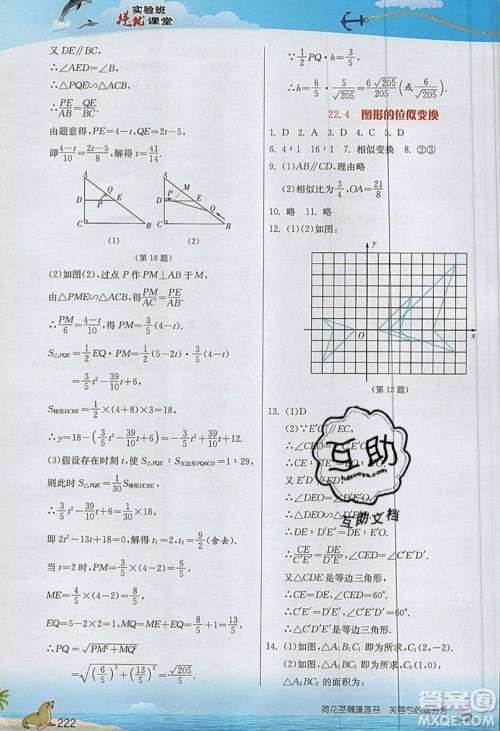 实验班
提优课堂
又 DE∥BC,
∴∠AED=∠C.
∴∠PQE=∠AED=∠C.
∴△PQE∽△ACB.
∴PE/AB=QE/BC.
由题意得,PE=4-t,QE=2t-5,
即 (4-t)/10=(2t-5)/8,解得 t=41/14.
(1)
(2)
(第 18 题)
(2)如图(2),过点 P 作 PM⊥AB 于 M,
由△PME∽△ABC,得 PM/AC=PE/AB.
∴PM/6=(4-t)/10,得 PM=3/5(4-t).
S△PQE=1/2EQ·PM=1/2(5-2t)·3/5(4-t)
=3/5t²-39/10t+6,
S梯形DCBE=1/2×(4+8)×3=18,
∴y=18-(3/5t²-39/10t+6)=-3/5t²+39/10t+12.
(3)假设存在时刻 t,使 S△PQE∶S五边形PQBCD=1∶29,
则此时 S△PQE=1/30S梯形DCBE,
∴3/5t²-39/10t+6=1/30×18,
即 2t²-13t+18=0,解得 t₁=2,t₂=9/2(舍去).
当 t=2 时,PM=3/5×(4-2)=6/5,
ME=4/5×(4-2)=8/5,
EQ=5-2×2=1,MQ=ME+EQ=8/5+1=13/5,
∴PQ=√(PM²+MQ²)
=√((6/5)²+(13/5)²)=√205/5.
222
∵1/2PQ·h=3/5,
∴h=6/5·5/√205=6√205/205(或 6/√205).
22.4 图形的位似变换
1. D 2. A 3. A 4. D 5. D
6. 4∶1 16∶1 7. 相似变换 8. ②③
9. (1)AB∥CD,理由略
(2)相似比为 3/4,OA=21/8
10. 略 11. 略
12. (1)(2)如图:
(第 12 题)
13. (1)D
(2)∵E′C′∥EC,
∴∠C
∴CE∶
又∵D′E′∥DE,
∴∠DEO=∠D′E′O.
∴△DEO∽△D′E′O.
∴DE∶
∴CE/C′E′=DE/D′E′,∠CED=∠C′E′D′.
又△CDE 是等边三角形,
∴CE=DE,∠CED=60°.
∴C′E′=D′E′,∠C′E′D′=60°.
∴△C′D′E′是等边三角形.
14. (1)如图,△A₁B₁C₁ 即为所求,
(2)如图,△A₂B₂C₂ 即为所求,
△A₂B₂C₂ 的面积为:
互助
hdzuoye.com
互助文档